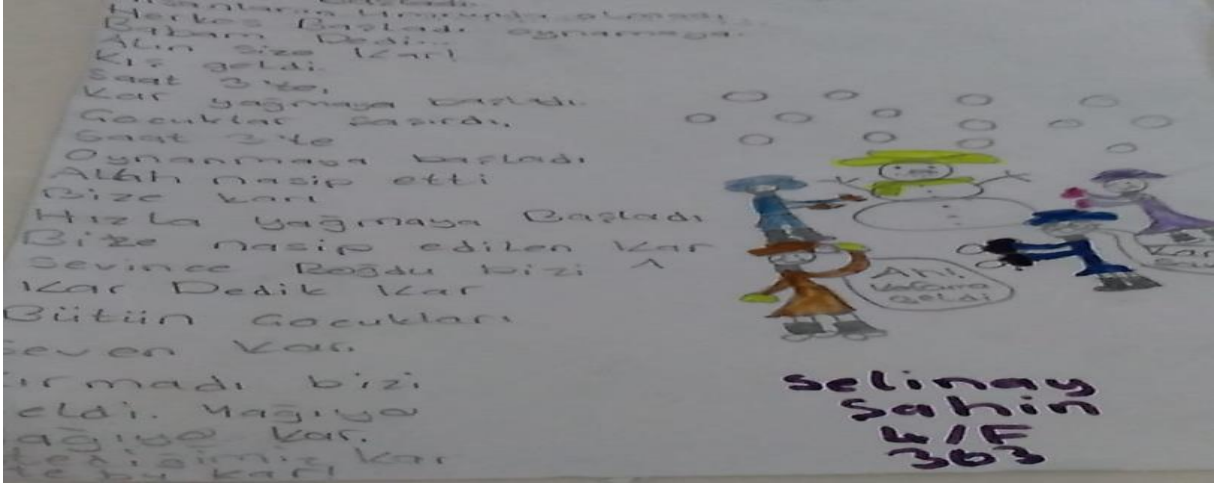 başladı.
İnsanların Umrunda olmadı
Herkes Başladı oynamaya.
Babam Dedi...
Alın size kar!
Kış geldi.
Saat 3'te,
Kar yağmaya başladı.
Çocuklar şaşırdı,
Saat 3'te
Oynanmaya başladı
Allah nasip etti
Bize karı
Hızla yağmaya Başladı
Bize nasip edilen kar
Sevince Boğdu bizi
Kar Dedik kar
Bütün Çocukları
Seven kar.
bizi
Yağıyo
kar.
kar
bu kar!
Ah!
kafama
geldi
Kar
Selinay
Şahin
4/F
363